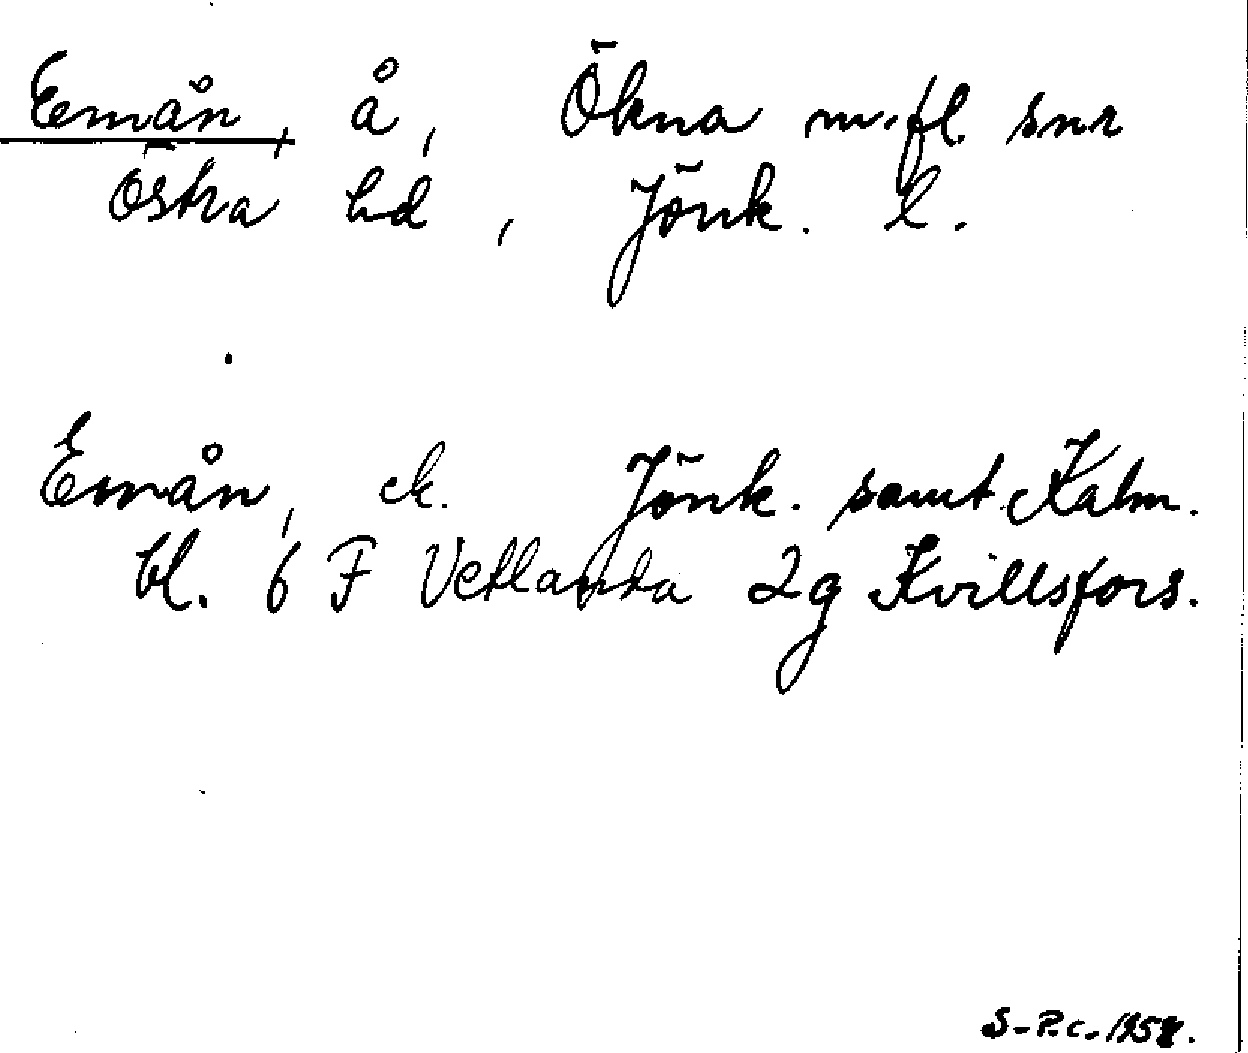 Emån, å, Ökna m.fl. snr
Östra hd, Jönk. l.
Emån, ek. Jönk. samt Kalm.
bl. 6 F Vetlanda 2g Kvillsfors.
S-P.C. 1958.